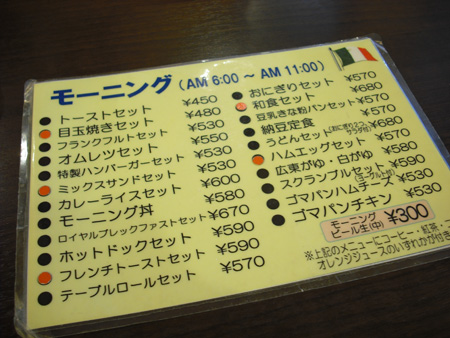 モーニング (AM 6:00 ~ AM 11:00)
トーストセット ¥450
目玉焼きセット ¥480
フランクフルトセット ¥530
オムレツセット ¥550
特製ハンバーガーセット ¥530
ミックスサンドセット ¥530
カレーライスセット ¥600
モーニング丼 ¥580
ロイヤルブレックファストセット ¥670
ホットドックセット ¥590
フレンチトーストセット ¥590
テーブルロールセット ¥570
おにぎりセット ¥570
和食セット ¥680
豆乳きな粉パンセット ¥570
納豆定食 ¥570
うどんセット ¥680
ハムエッグセット ¥570
広東がゆ・白がゆ ¥580
スクランブルセット(ヨーグルト付) ¥590
ゴマパンハムチーズ ¥530
ゴマパンチキン ¥530
モーニング
ビール生(中) ¥300
※上記のメニューにコーヒー・紅茶・
オレンジジュースのいずれかが付き